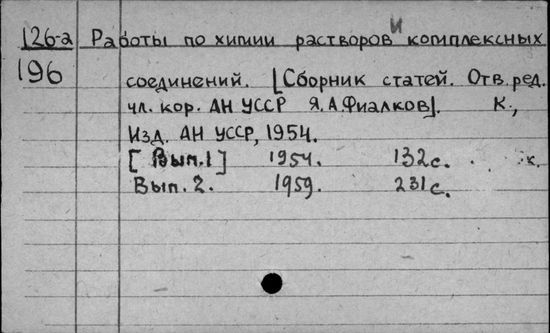 126-а Работы по химии растворов и комплексных
196 соединений. [Сборник статей. Отв. ред.
чл. кор. АН УССР Я. А. Фиалков]. К.,
Изд. АН УССР, 1954.
[Вып. 1] 1954. 132 с. к.
Вып. 2. 1959. 231 с.